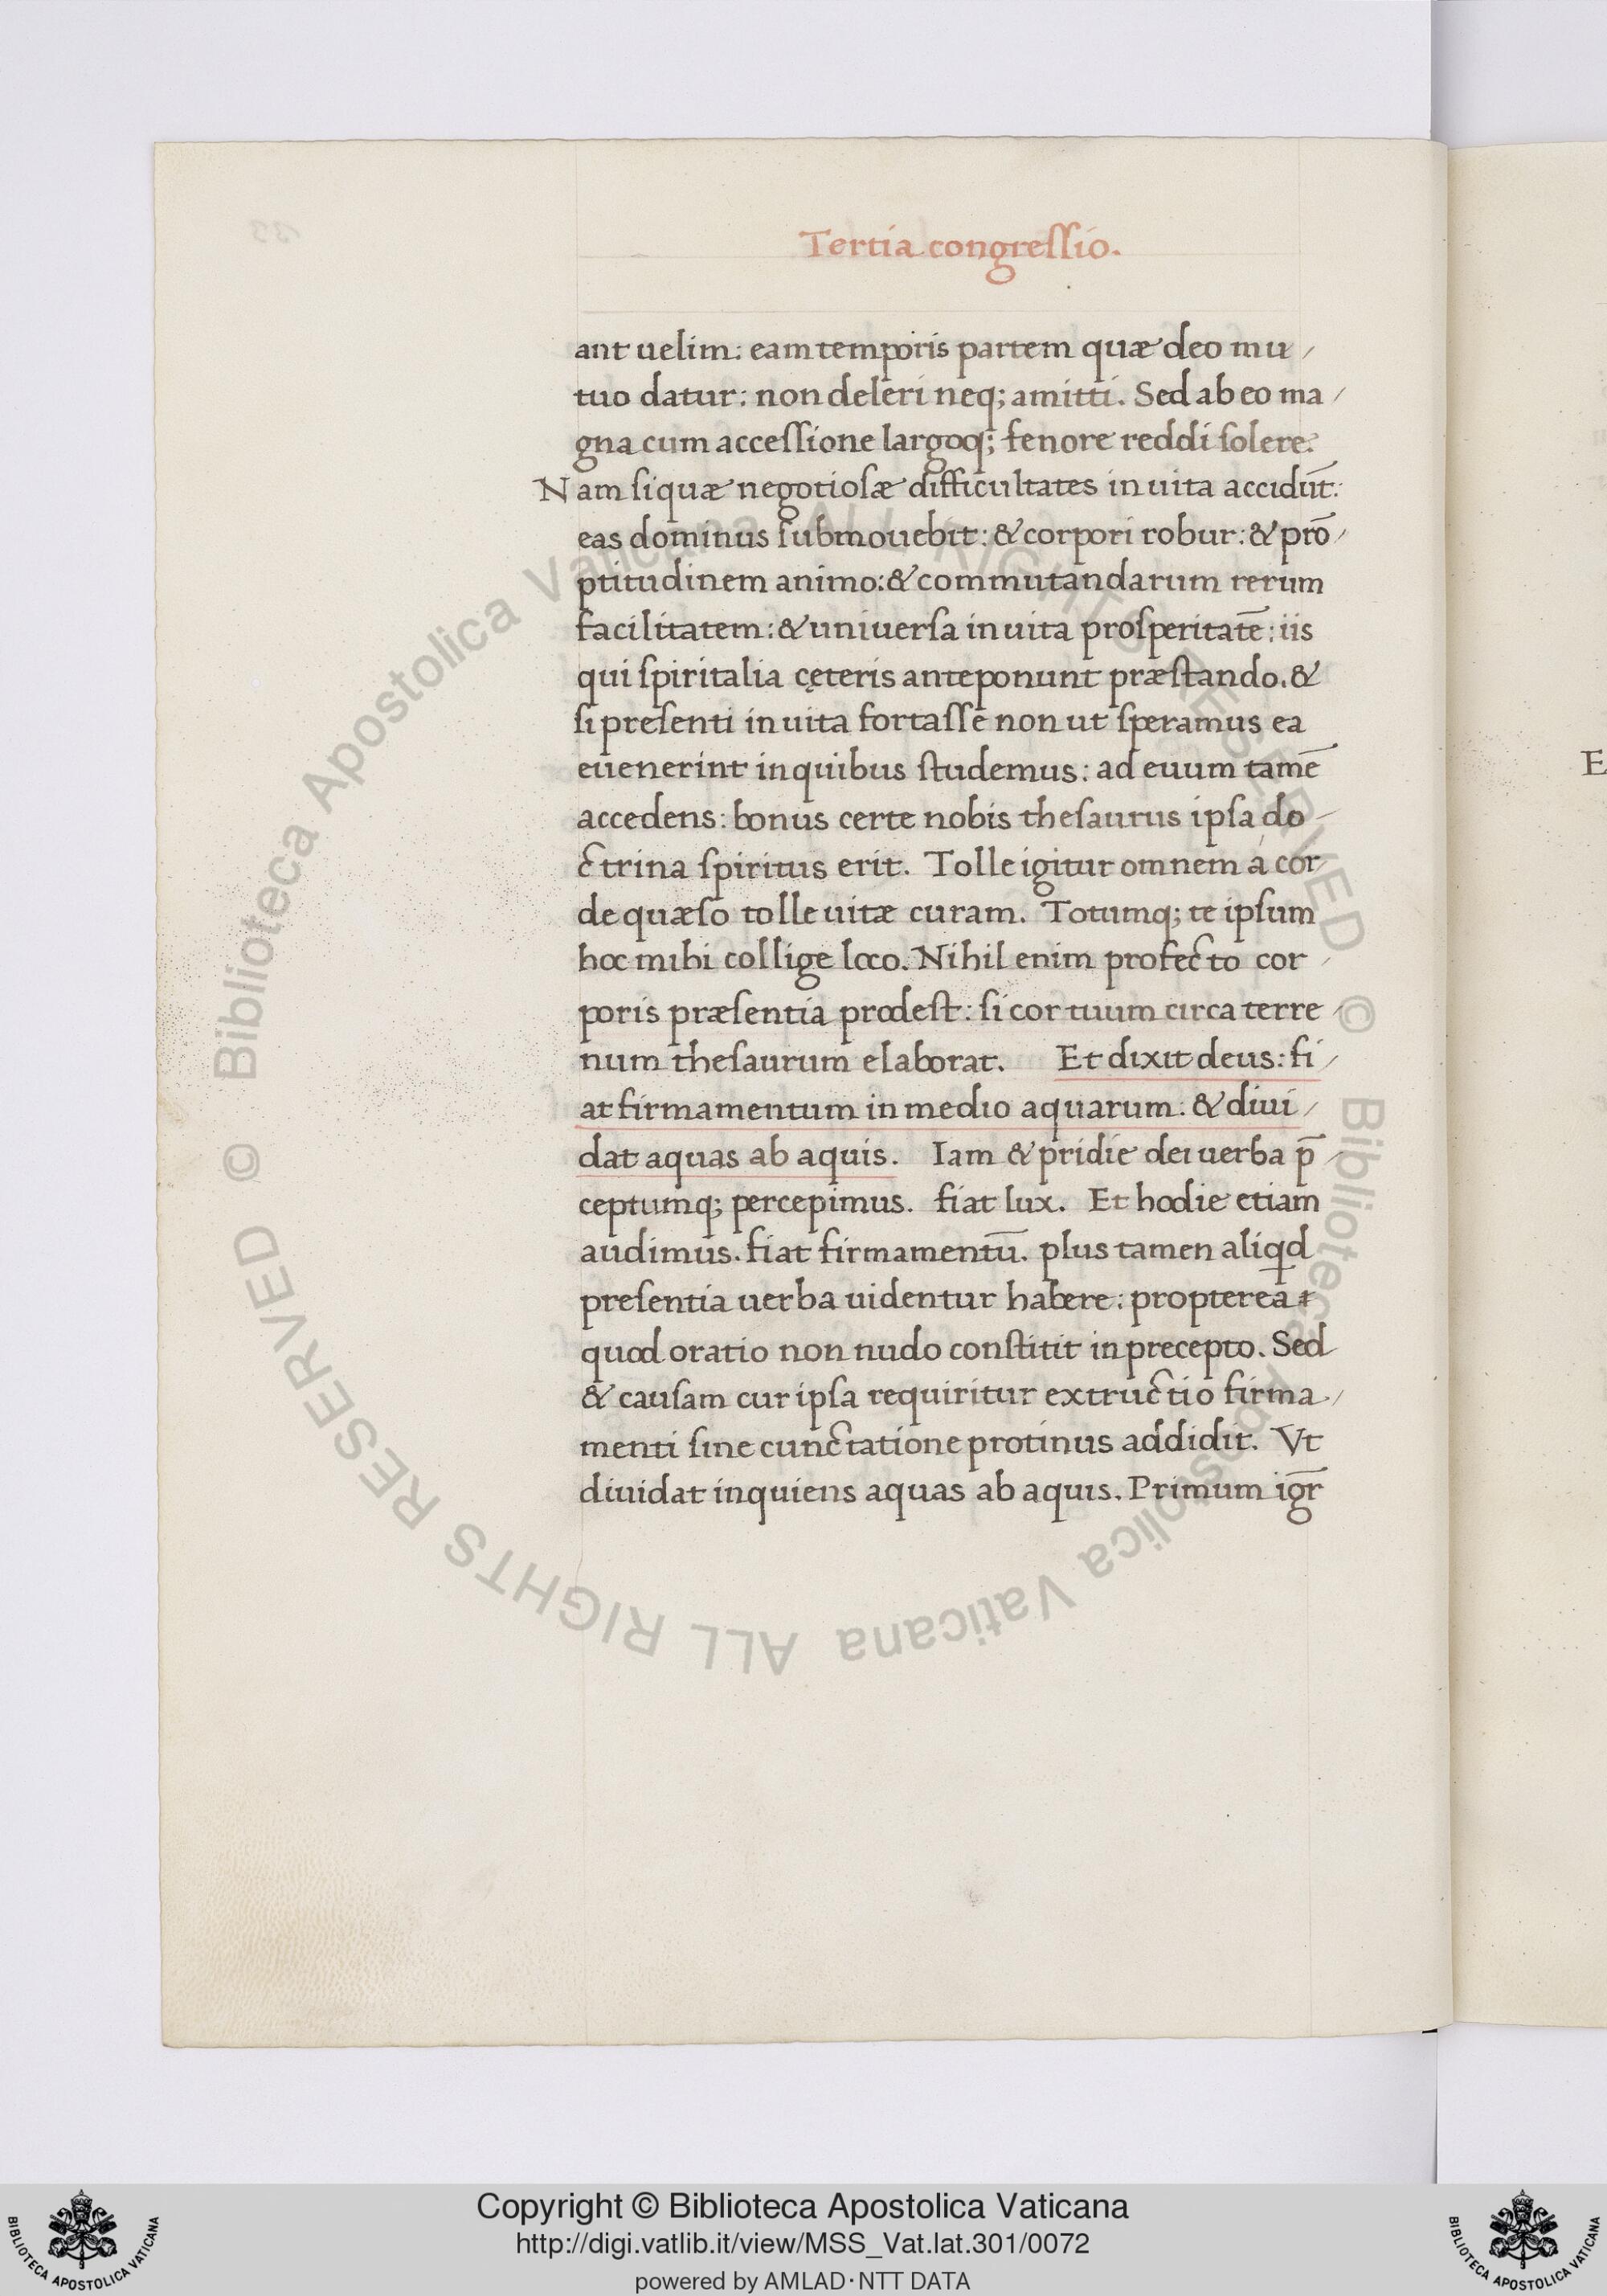 Tertia congreſſio.
ant uelim: eam temporis partem quæ deo mu/
tuo datur: non deleri neq; amitti. Sed ab eo ma/
gna cum acceſſione largoq; fenore reddi ſolere.
Nam ſi quæ negotioſæ difficultates in uita accidūt:
eas dominus ſubmouebit: & corpori robur: & prō/
ptitudinem animo: & commutandarum rerum
facilitatem: & uniuerſa in uita proſperitatē: iis
qui ſpiritalia cęteris anteponunt præſtando. &
ſi preſenti in uita fortaſſe non ut ſperamus ea
euenerint in quibus ſtudemus: ad euum tamē
accedens: bonus certe nobis theſaurus ipſa do/
ctrina ſpiritus erit. Tolle igitur omnem á cor
de quæſo tolle uitæ curam. Totumq; te ipſum
hoc mihi collige loco. Nihil enim profecto cor/
poris præſentia prodeſt: ſi cor tuum circa terre/
num theſaurum elaborat. Et dixit deus: fi/
at firmamentum in medio aquarum: & diui/
dat aquas ab aquis. Iam & pridie dei uerba p̄/
ceptumq; percepimus. fiat lux. Et hodie etiam
audimus. fiat firmamentū. plus tamen aliqd
preſentia uerba uidentur habere: propterea
quod oratio non nudo conſtitit in precepto. Sed
& cauſam cur ipſa requiritur extructio firma/
menti ſine cunctatione protinus addidit. Vt
diuidat inquiens aquas ab aquis. Primum igr̄
E
© Biblioteca Apostolica Vaticana ALL RIGHTS RESERVED © Biblioteca Apostolica Vaticana ALL RIGHTS RESERVED
Copyright © Biblioteca Apostolica Vaticana
http://digi.vatlib.it/view/MSS_Vat.lat.301/0072
powered by AMLAD·NTT DATA
BIBLIOTECA APOSTOLICA VATICANA
BIBLIOTECA APOSTOLICA VATICANA